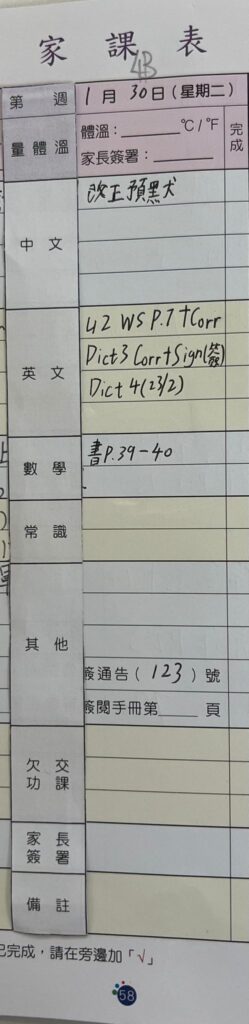 家課表
4B
第 週 1月30日(星期二) 完成
量體溫 體溫:______℃/℉
家長簽署:______
中文 改正預黑犬
英文 U2 WS P.7+Corr
Dict3 Corr+Sign(簽)
Dict 4(23/2)
數學 書P.39-40
常識
其他
簽通告(123)號
簽閱手冊第____頁
欠交功課
家長簽署
備註
已完成,請在旁邊加「√」
58